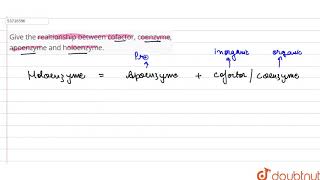 53736596
Give the realtionship between cofactor, coenzyme,
apoenzyme and holoenzyme.
Pro inorganic organic
Holoenzyme = Apoenzyme + cofactor / Coenzyme
doubtnut